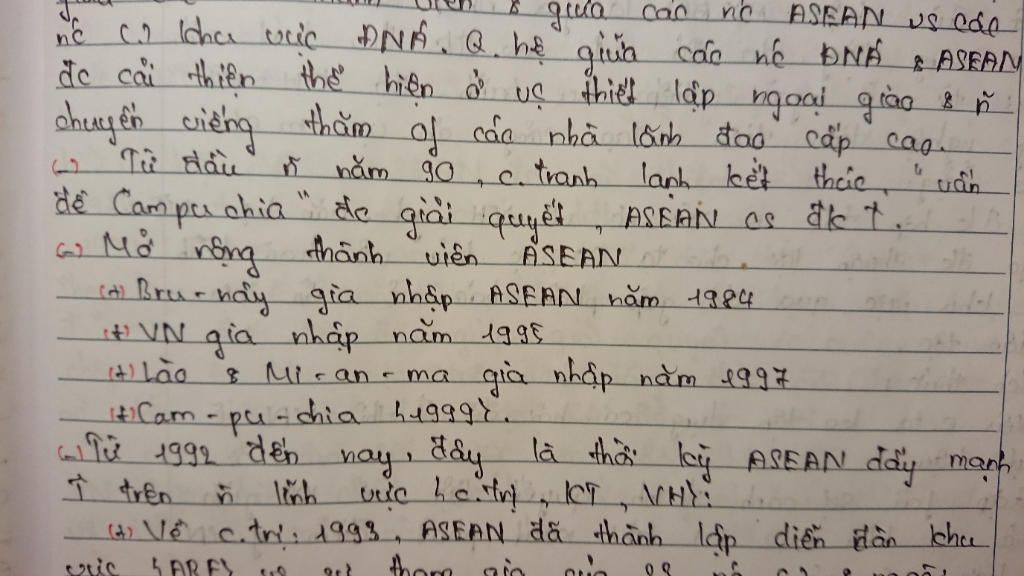 giữa các nc ASEAN vs các
nc (.) khu vực ĐNÁ. Q hệ giữa các nc ĐNÁ & ASEAN
đc cải thiện thể hiện ở vc thiết lập ngoại giao & ~n
chuyến viếng thăm of các nhà lãnh đạo cấp cao.
(-) Từ đầu ~n năm 90, c.tranh lạnh kết thúc, "vấn
đề Campuchia" đc giải quyết, ASEAN cs đk ↑.
(-) Mở rộng thành viên ASEAN
(+) Bru-nây gia nhập ASEAN năm 1984
(+) VN gia nhập năm 1995
(+) Lào & Mi-an-ma gia nhập năm 1997
(+) Cam-pu-chia (1999).
(-) Từ 1992 đến nay, đây là thời kỳ ASEAN đẩy mạnh
↑ trên ~n lĩnh vực (c.trị, KT, VH):
(+) Về c.trị: 1993, ASEAN đã thành lập diễn đàn khu
vực (ARF) tham gia của